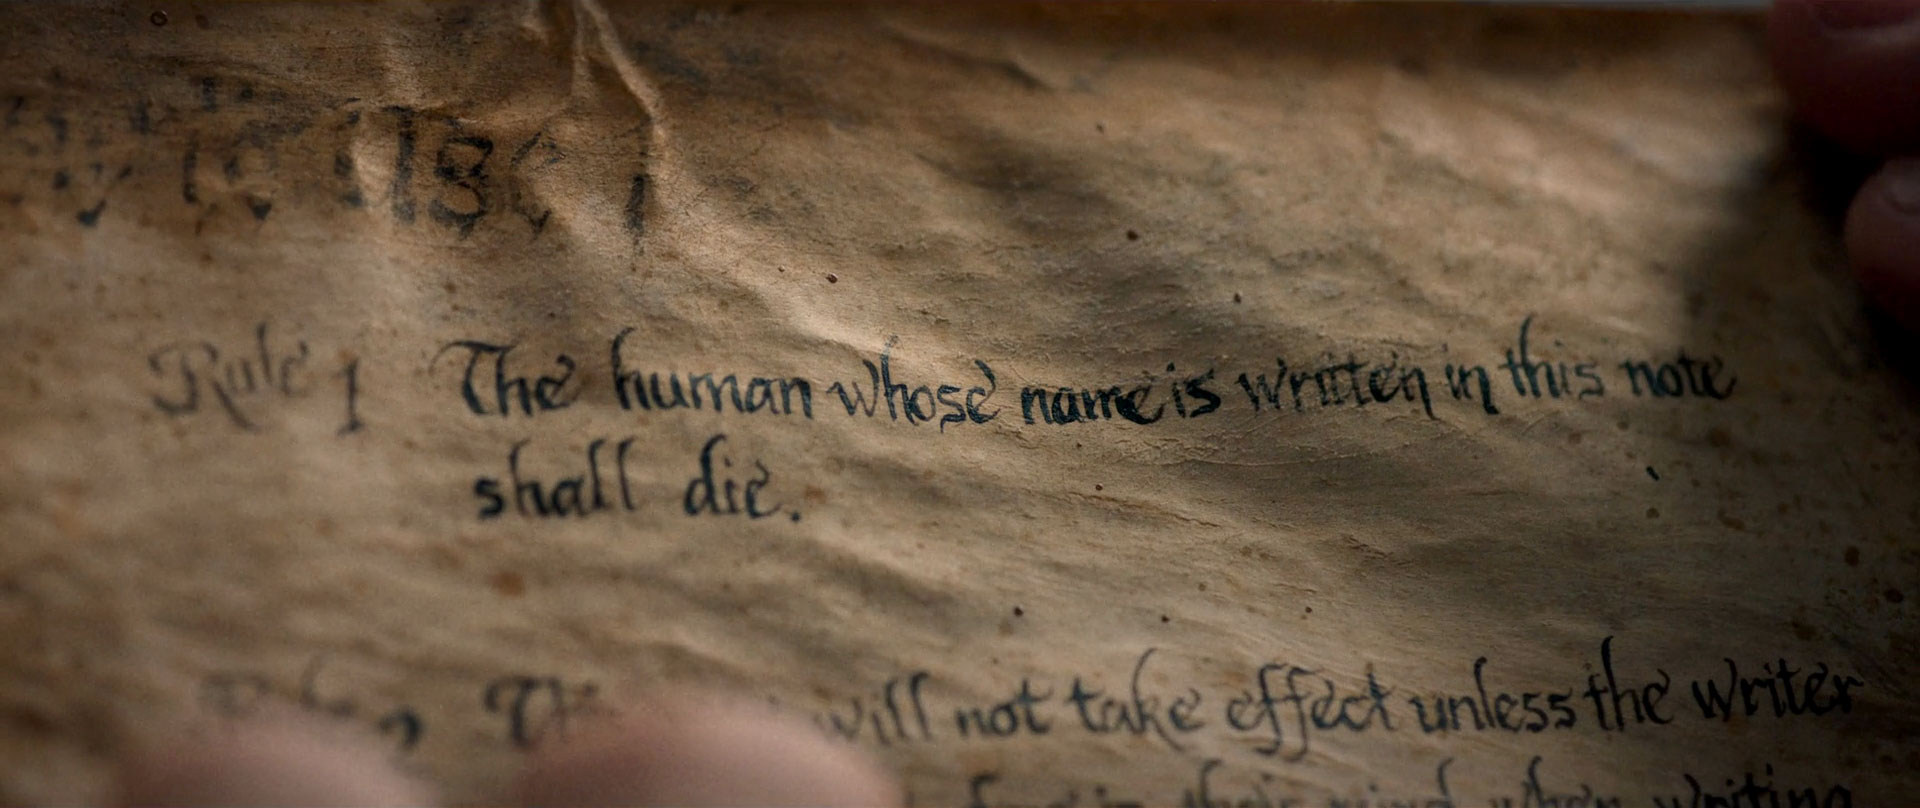 to use 1
Rule 1 The human whose name is written in this note
shall die.
will not take effect unless the writer
in their mind when writing